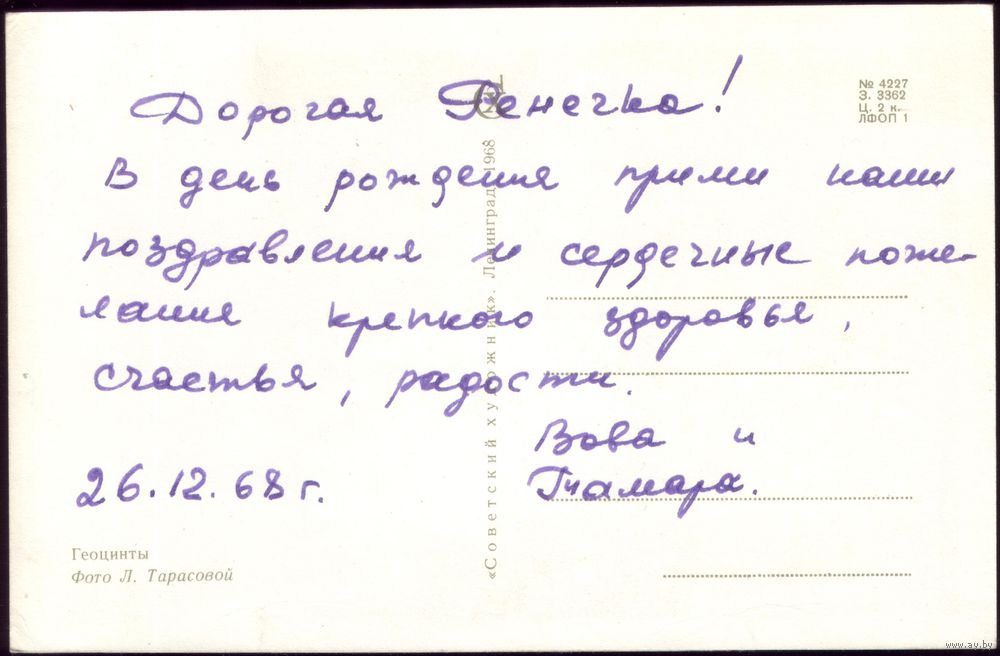 Дорогая Ренечка!
В день рождения прими наши
поздравления и сердечные поже-
лания крепкого здоровья,
счастья, радости.
Вова и
Тамара.
26.12.68 г.
Геоцинты
Фото Л. Тарасовой
«Советский художник». Ленинград. 1968
№ 4227
З. 3362
Ц. 2 к.
ЛФОП 1
www.ay.by